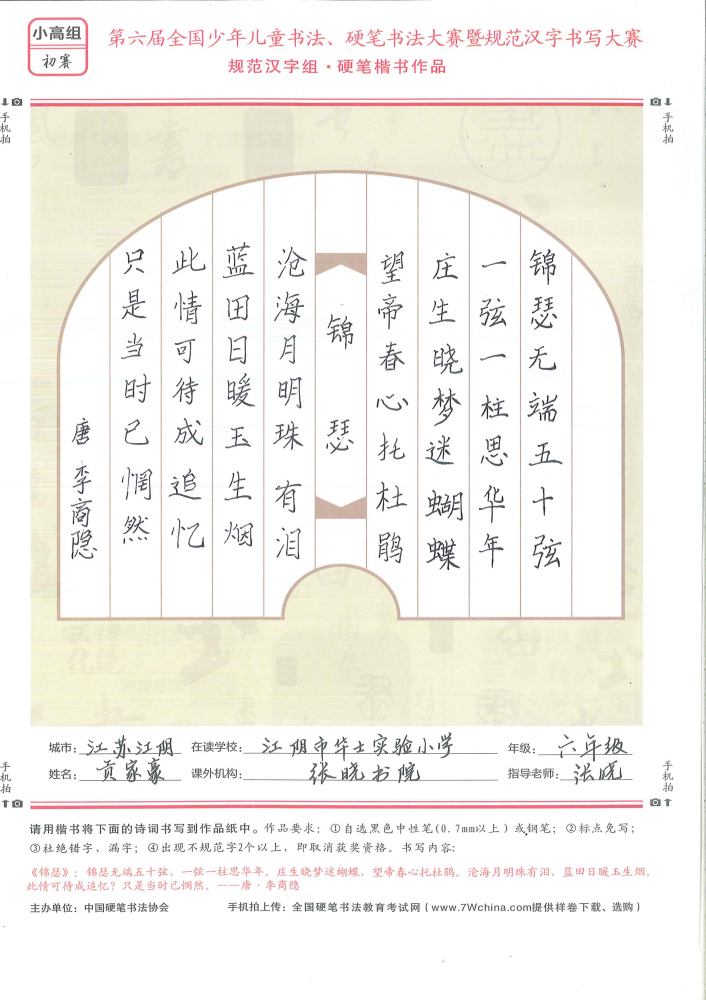 小高组
初赛
第六届全国少年儿童书法、硬笔书法大赛暨规范汉字书写大赛
规范汉字组·硬笔楷书作品
手机拍
手机拍
锦瑟无端五十弦
一弦一柱思华年
庄生晓梦迷蝴蝶
望帝春心托杜鹃
锦瑟
沧海月明珠有泪
蓝田日暖玉生烟
此情可待成追忆
只是当时已惘然
唐 李商隐
城市：江苏江阴 在读学校：江阴市华士实验小学 年级：六年级
姓名：贡家豪 课外机构：张晓书院 指导老师：张晓
手机拍
手机拍
请用楷书将下面的诗词书写到作品纸中。作品要求：①自选黑色中性笔(0.7mm以上）或钢笔；②标点免写；
③杜绝错字、漏字；④出现不规范字2个以上，即取消获奖资格。书写内容：
《锦瑟》：锦瑟无端五十弦，一弦一柱思华年。庄生晓梦迷蝴蝶，望帝春心托杜鹃。沧海月明珠有泪，蓝田日暖玉生烟。
此情可待成追忆？只是当时已惘然。——唐·李商隐
主办单位：中国硬笔书法协会 手机拍上传：全国硬笔书法教育考试网（www.7Wchina.com提供样卷下载、选购）